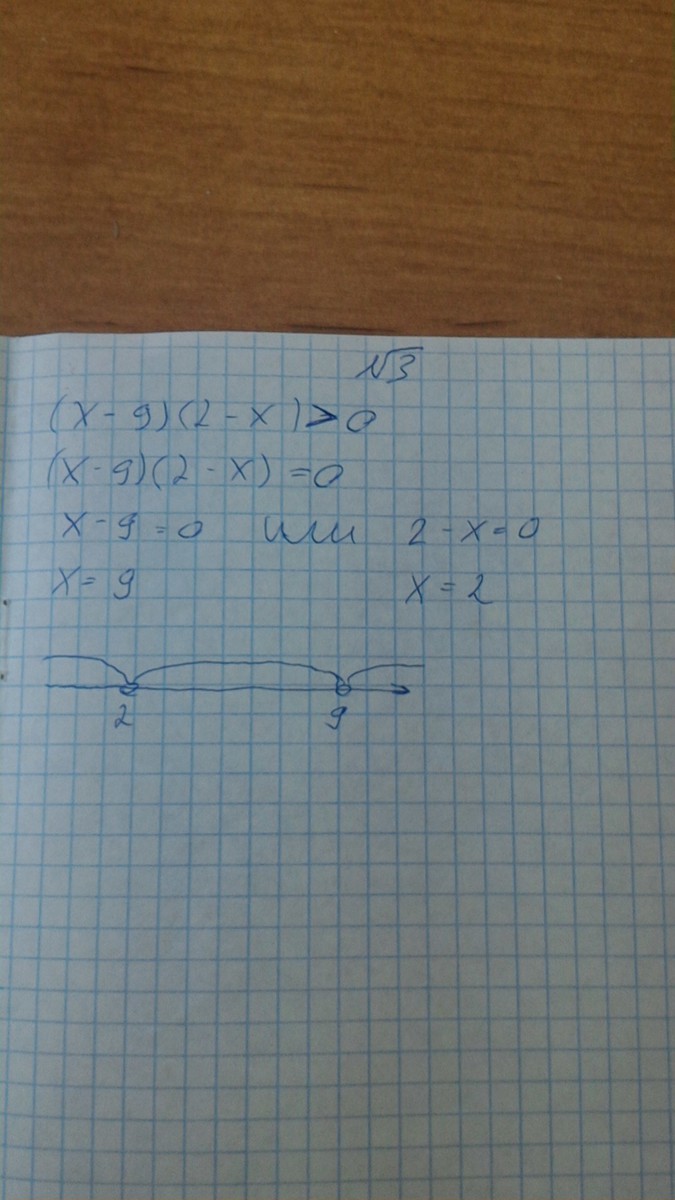 √3
(x-9)(2-x)>0
(x-9)(2-x)=0
x-9=0 или 2-x=0
x=9 x=2
2 9